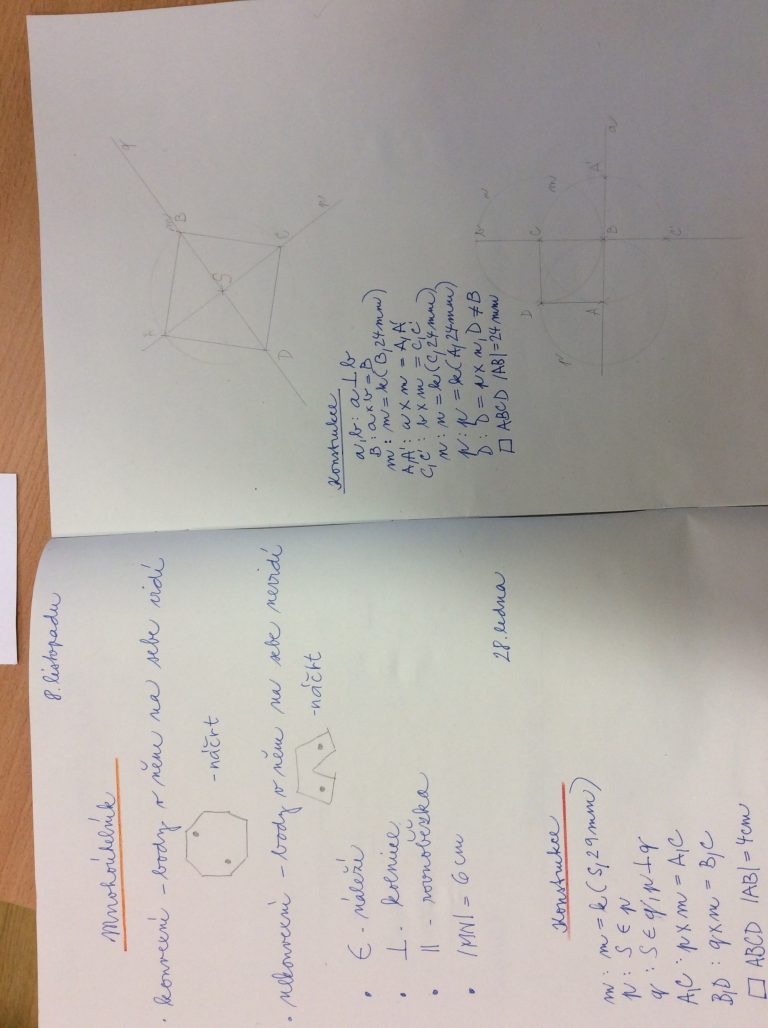 8. listopadu
Mnohoúhelník
· konvexní - body v něm na sebe vidí
-náčrt
· nekonvexní - body v něm na sebe nevidí
-náčrt
• ∈ - náleží
• ⊥ - kolmice
• || - rovnoběžka
• |MN| = 6 cm
28. ledna
Konstrukce
m : m = k(S, 29mm)
p : S ∈ p
q : S ∈ q, p ⊥ q
A,C : p x m = A,C
B,D : q x m = B,C
□ ABCD |AB| = 4cm
q
m B
S
C
p
D
Konstrukce
a,b : a ⊥ b
B : a x b = B
m : m = k(B, 24mm)
A,A' : a x m = A,A'
C,C' : b x m = C,C'
n : n = k(C, 24mm)
p : p = k(A, 24mm)
D : D = p x n, D ≠ B
□ ABCD |AB| = 24mm
n
m
a
D
C
A'
p
A
B
C'